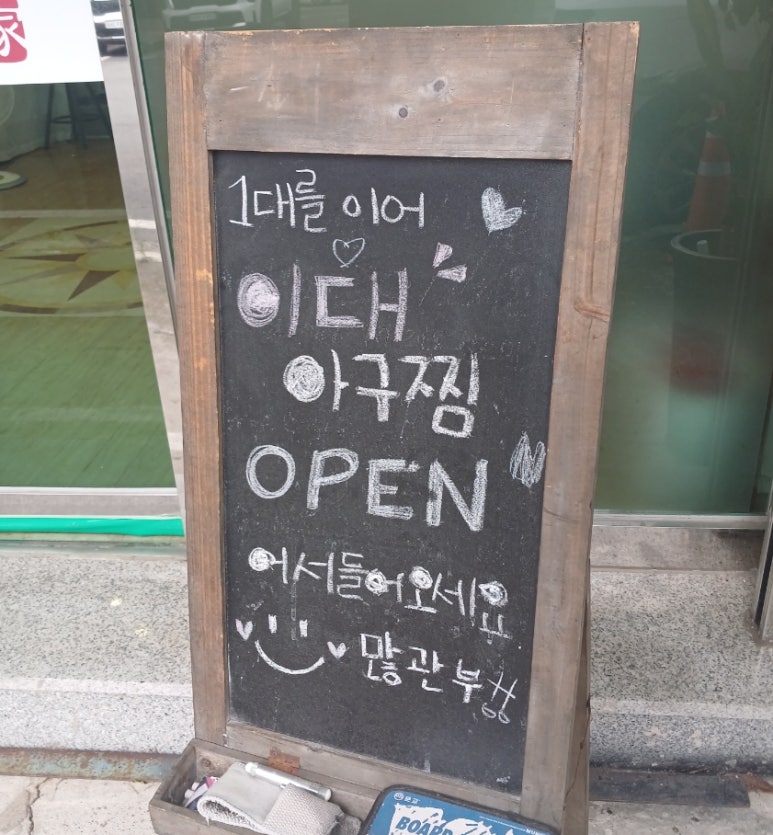 家
1대를 이어
이대
아구찜
OPEN
어서들어오세요
많관부
BOARD